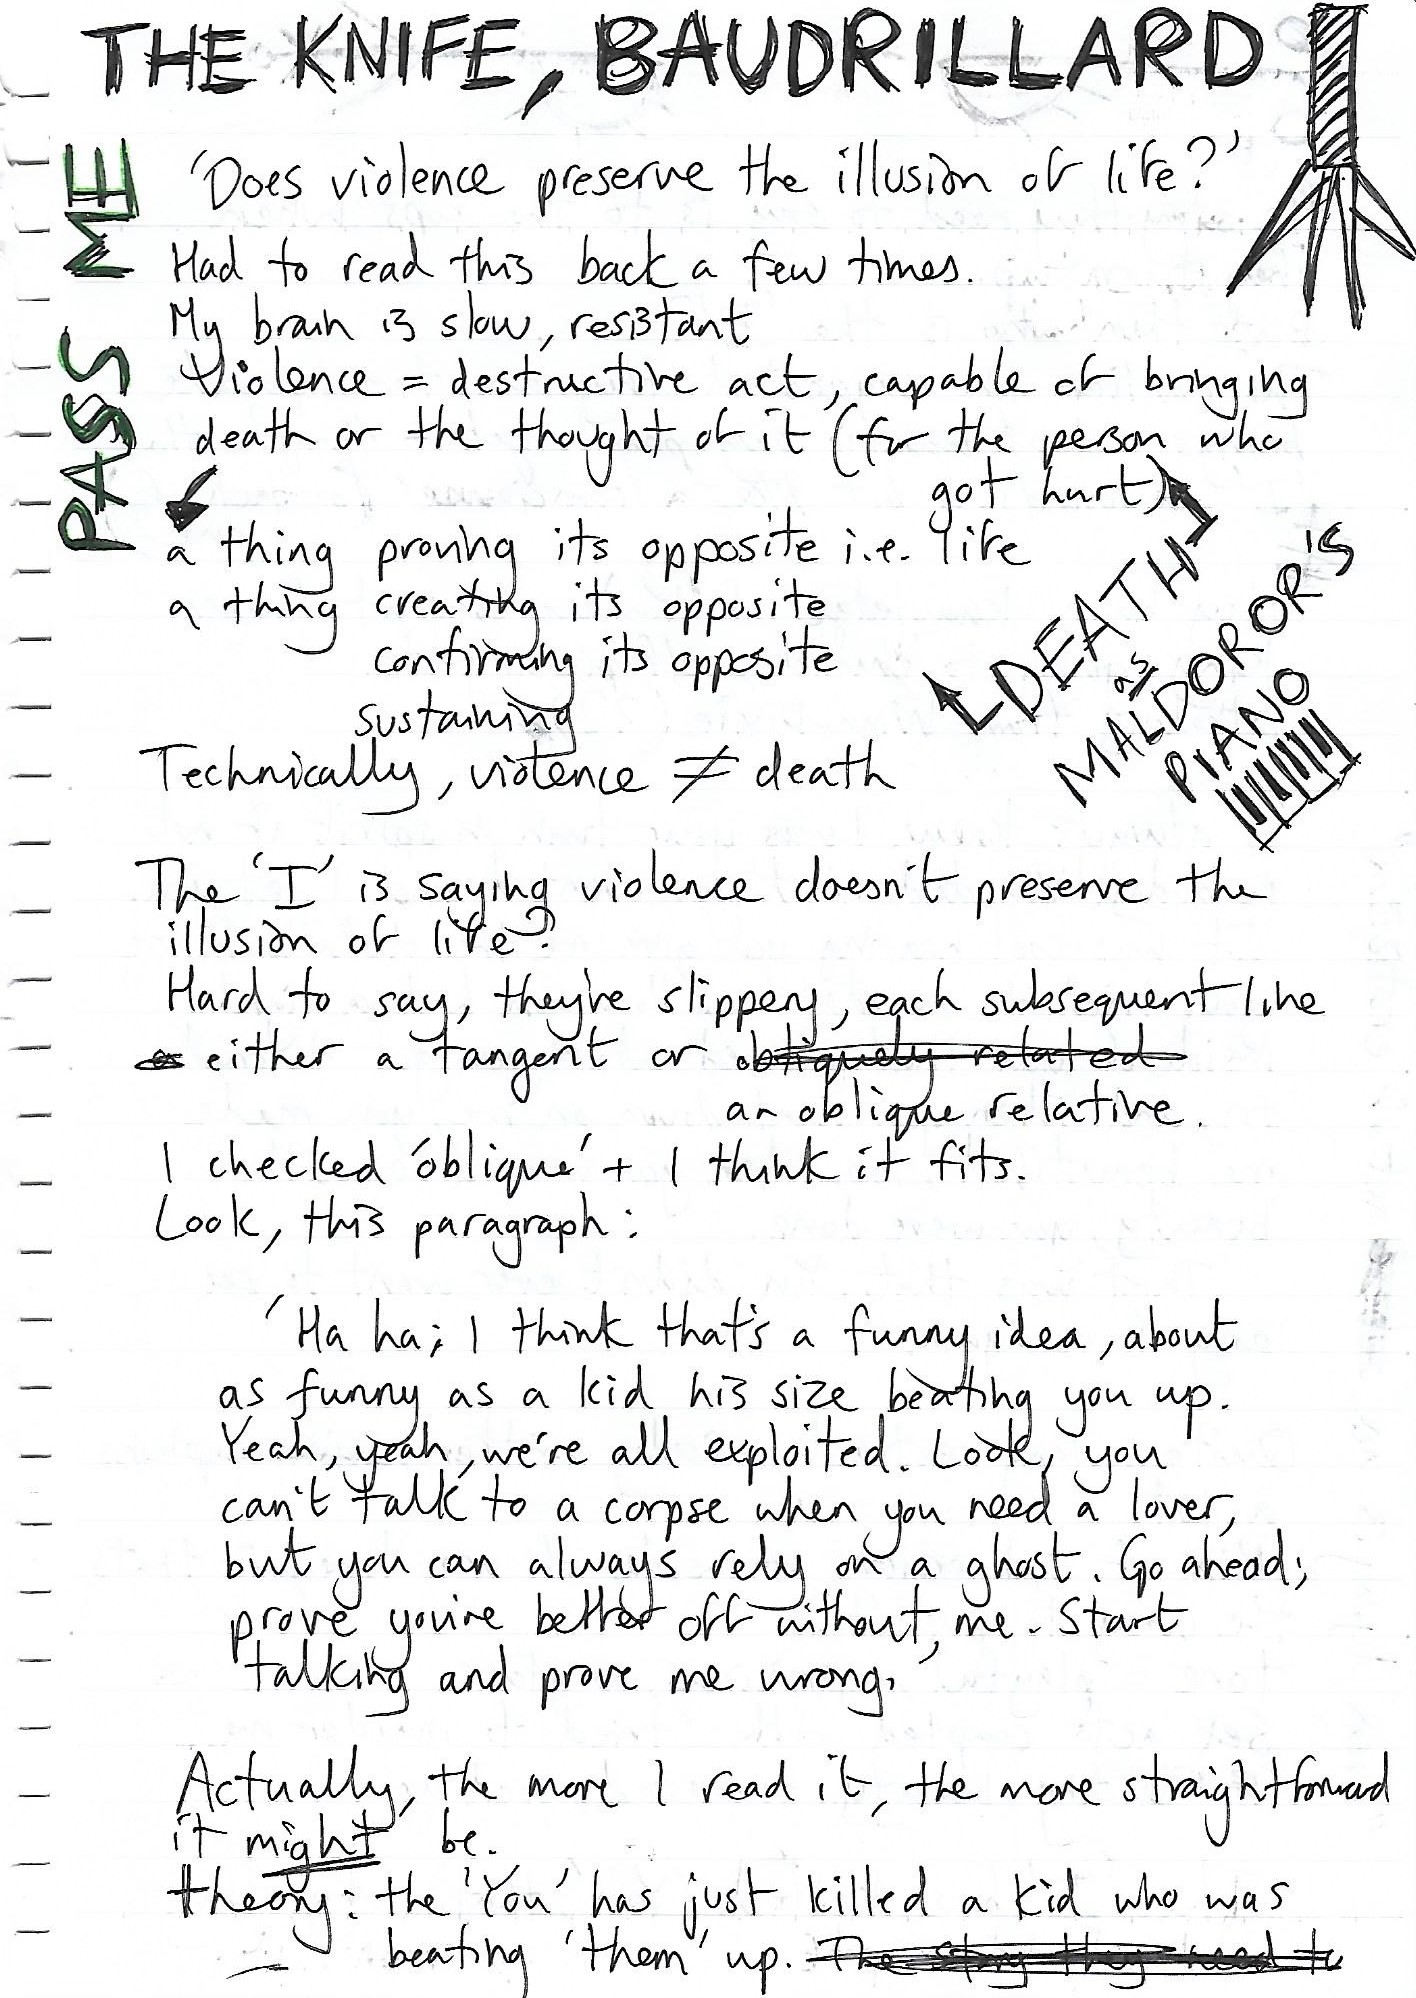 PASS ME
THE KNIFE, BAUDRILLARD
'Does violence preserve the illusion of life?'
Had to read this back a few times.
My brain is slow, resistant
Violence = destructive act, capable of bringing
death or the thought of it (for the person who
got hurt)
a thing proving its opposite i.e. life
a thing creating its opposite
confirming its opposite
sustaining
DEATH
as
MALDOROR'S
PIANO
Technically, violence ≠ death
The 'I' is saying violence doesn't preserve the
illusion of life?
Hard to say, they're slippery, each subsequent line
either a tangent or obliquely related
an oblique relative.
I checked 'oblique' + I think it fits.
Look, this paragraph:
'Ha ha; I think that's a funny idea, about
as funny as a kid his size beating you up.
Yeah, yeah, we're all exploited. Look, you
can't talk to a corpse when you need a lover,
but you can always rely on a ghost. Go ahead;
prove you're better off without me. Start
talking and prove me wrong.'
Actually, the more I read it, the more straightforward
it might be.
theory: the 'You' has just killed a kid who was
beating 'them' up. The story they need to